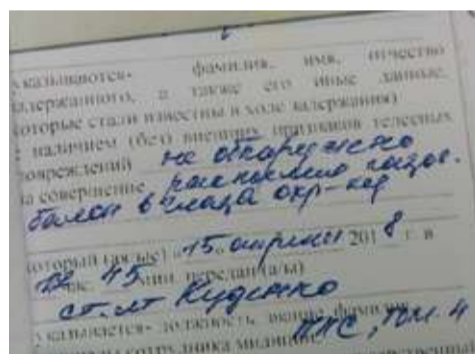 указываются- фамилия, имя, отчество
задержанного, а также его иные данные,
которые стали известны в ходе задержания)
с наличием (без) внешних признаков телесных
повреждений не обнаружено
за совершение распылил газов.
балон в глаза охр-
который (ая, ые) «15» апреля 2018 г. в
45 мин. передан(а/ы)
ст. л-т Куценко
указывается- должность, звание, фамилия
ППС,
сотрудника милиции,